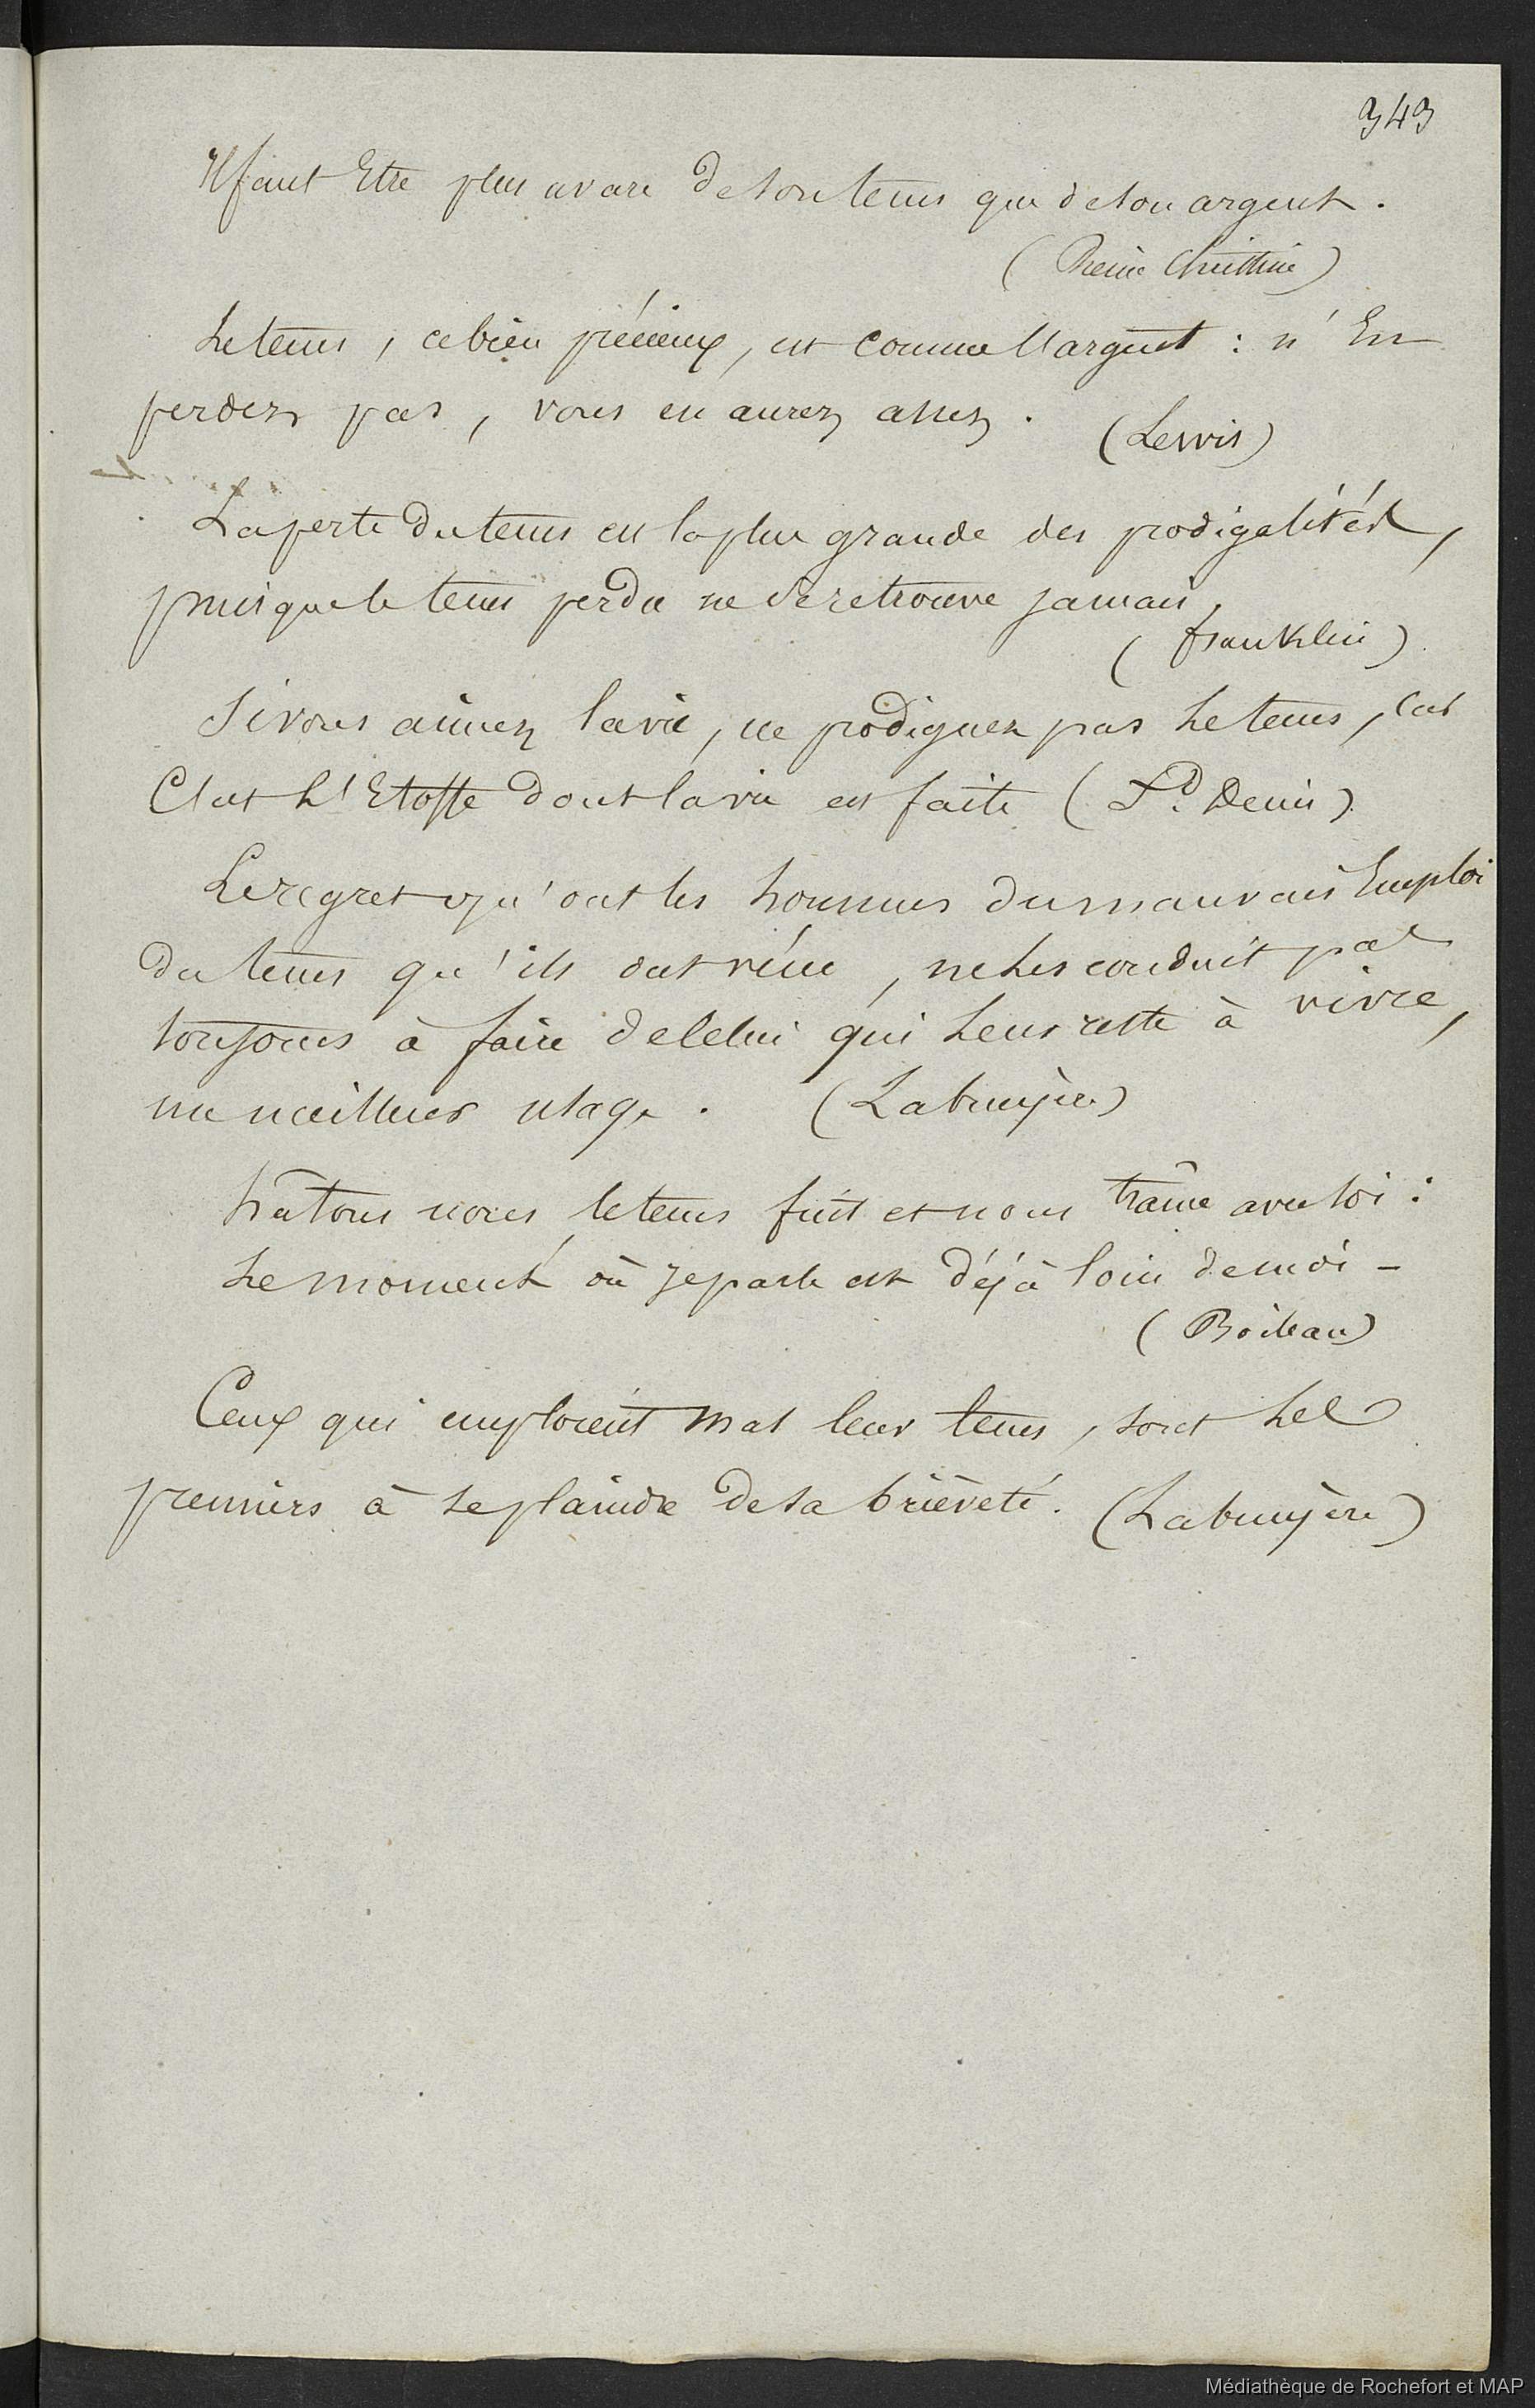 343
Il faut Etre plus avare de son tems que de son argent.
(Reine Christine)
Le tems, ce bien précieux, est comme l'argent : n'En
perdez pas, vous en aurez assez. (Lewis)
La perte du tems est la plus grande des prodigalités,
puisque le tems perdu ne se retrouve jamais,
(franklin)
Si vous aimez la vie, ne prodiguez pas le tems, car
C'est l'Etoffe dont la vie est faite (Fd. Denis)
Le regret qu'ont les hommes du mauvais Emploi
du tems qu'ils ont vécu, ne les conduit pas
toujours à faire de celui qui leur reste à vivre,
un meilleur usage. (Labruyère)
hâtons nous, le tems fuit et nous traîne avec soi :
Le moment où je parle est déjà loin de moi -
(Boileau)
Ceux qui emploient mal leur tems, sont les
premiers à se plaindre de sa brièveté. (Labruyère)
Médiathèque de Rochefort et MAP